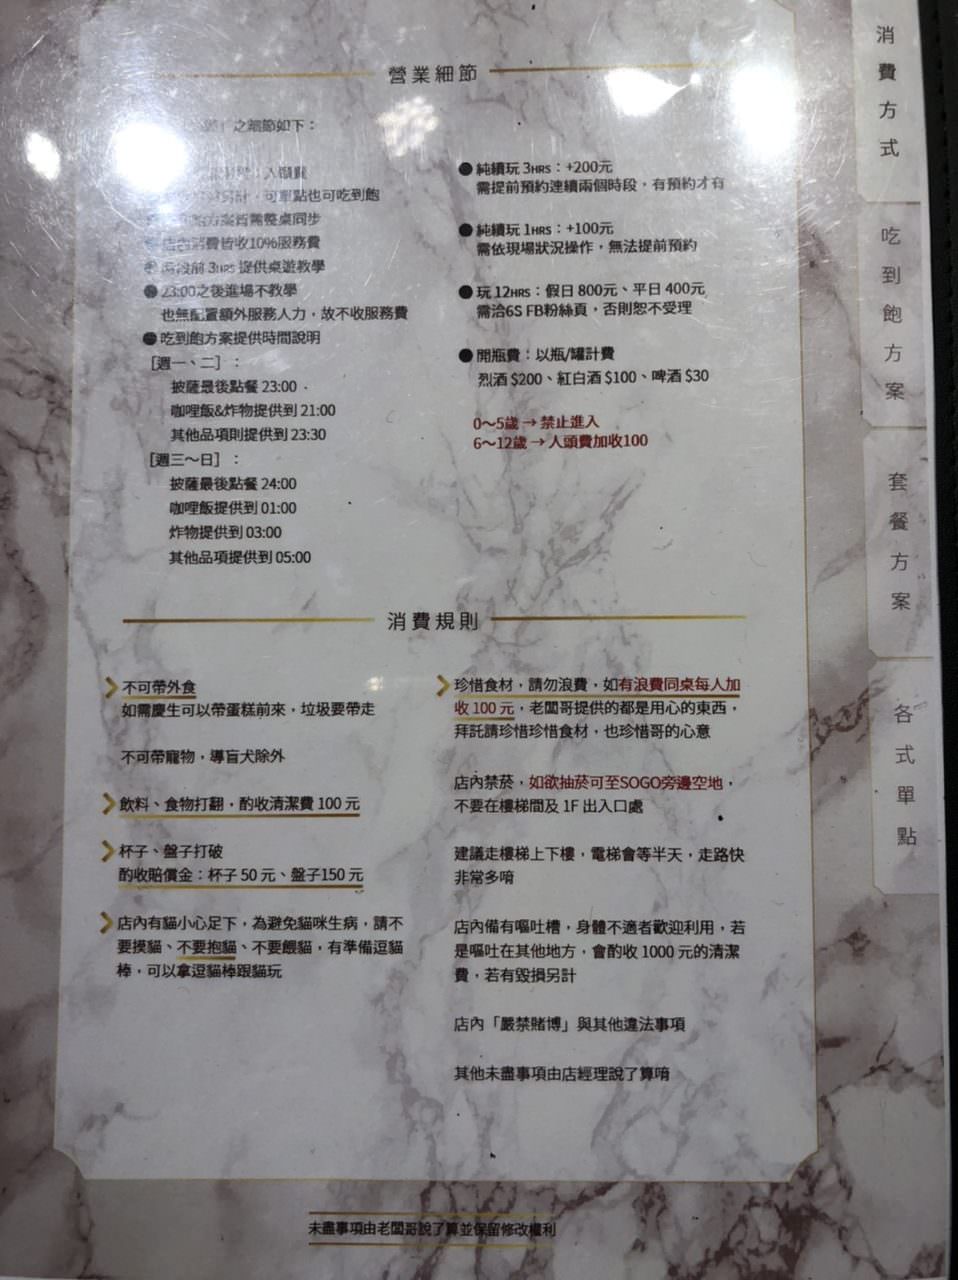 營業細節
之細節如下：
可單點也可吃到飽
方案皆需整桌同步
店內消費皆收10%服務費
兩段前 3HRS 提供桌遊教學
● 23:00之後進場不教學
也無配置額外服務人力，故不收服務費
● 吃到飽方案提供時間說明
［週一、二］：
披薩最後點餐 23:00
咖哩飯&炸物提供到 21:00
其他品項則提供到 23:30
［週三～日］：
披薩最後點餐 24:00
咖哩飯提供到 01:00
炸物提供到 03:00
其他品項提供到 05:00
● 純續玩 3HRS：+200元
需提前預約連續兩個時段，有預約才有
● 純續玩 1HRS：+100元
需依現場狀況操作，無法提前預約
● 玩 12HRS：假日 800元、平日 400元
需洽6S FB粉絲頁，否則恕不受理
● 開瓶費：以瓶/罐計費
烈酒 $200、紅白酒 $100、啤酒 $30
0～5歲 → 禁止進入
6～12歲 → 人頭費加收100
消費規則
不可帶外食
如需慶生可以帶蛋糕前來，垃圾要帶走
不可帶寵物，導盲犬除外
飲料、食物打翻，酌收清潔費 100 元
杯子、盤子打破
酌收賠償金：杯子 50 元、盤子150 元
店內有貓小心足下，為避免貓咪生病，請不
要摸貓、不要抱貓、不要餵貓，有準備逗貓
棒，可以拿逗貓棒跟貓玩
珍惜食材，請勿浪費，如有浪費同桌每人加
收 100 元，老闆哥提供的都是用心的東西，
拜託請珍惜珍惜食材，也珍惜哥的心意
店內禁菸，如欲抽菸可至SOGO旁邊空地，
不要在樓梯間及 1F 出入口處
建議走樓梯上下樓，電梯會等半天，走路快
非常多唷
店內備有嘔吐槽，身體不適者歡迎利用，若
是嘔吐在其他地方，會酌收 1000 元的清潔
費，若有毀損另計
店內「嚴禁賭博」與其他違法事項
其他未盡事項由店經理說了算唷
未盡事項由老闆哥說了算並保留修改權利
消費方式
吃到飽方案
套餐方案
各式單點